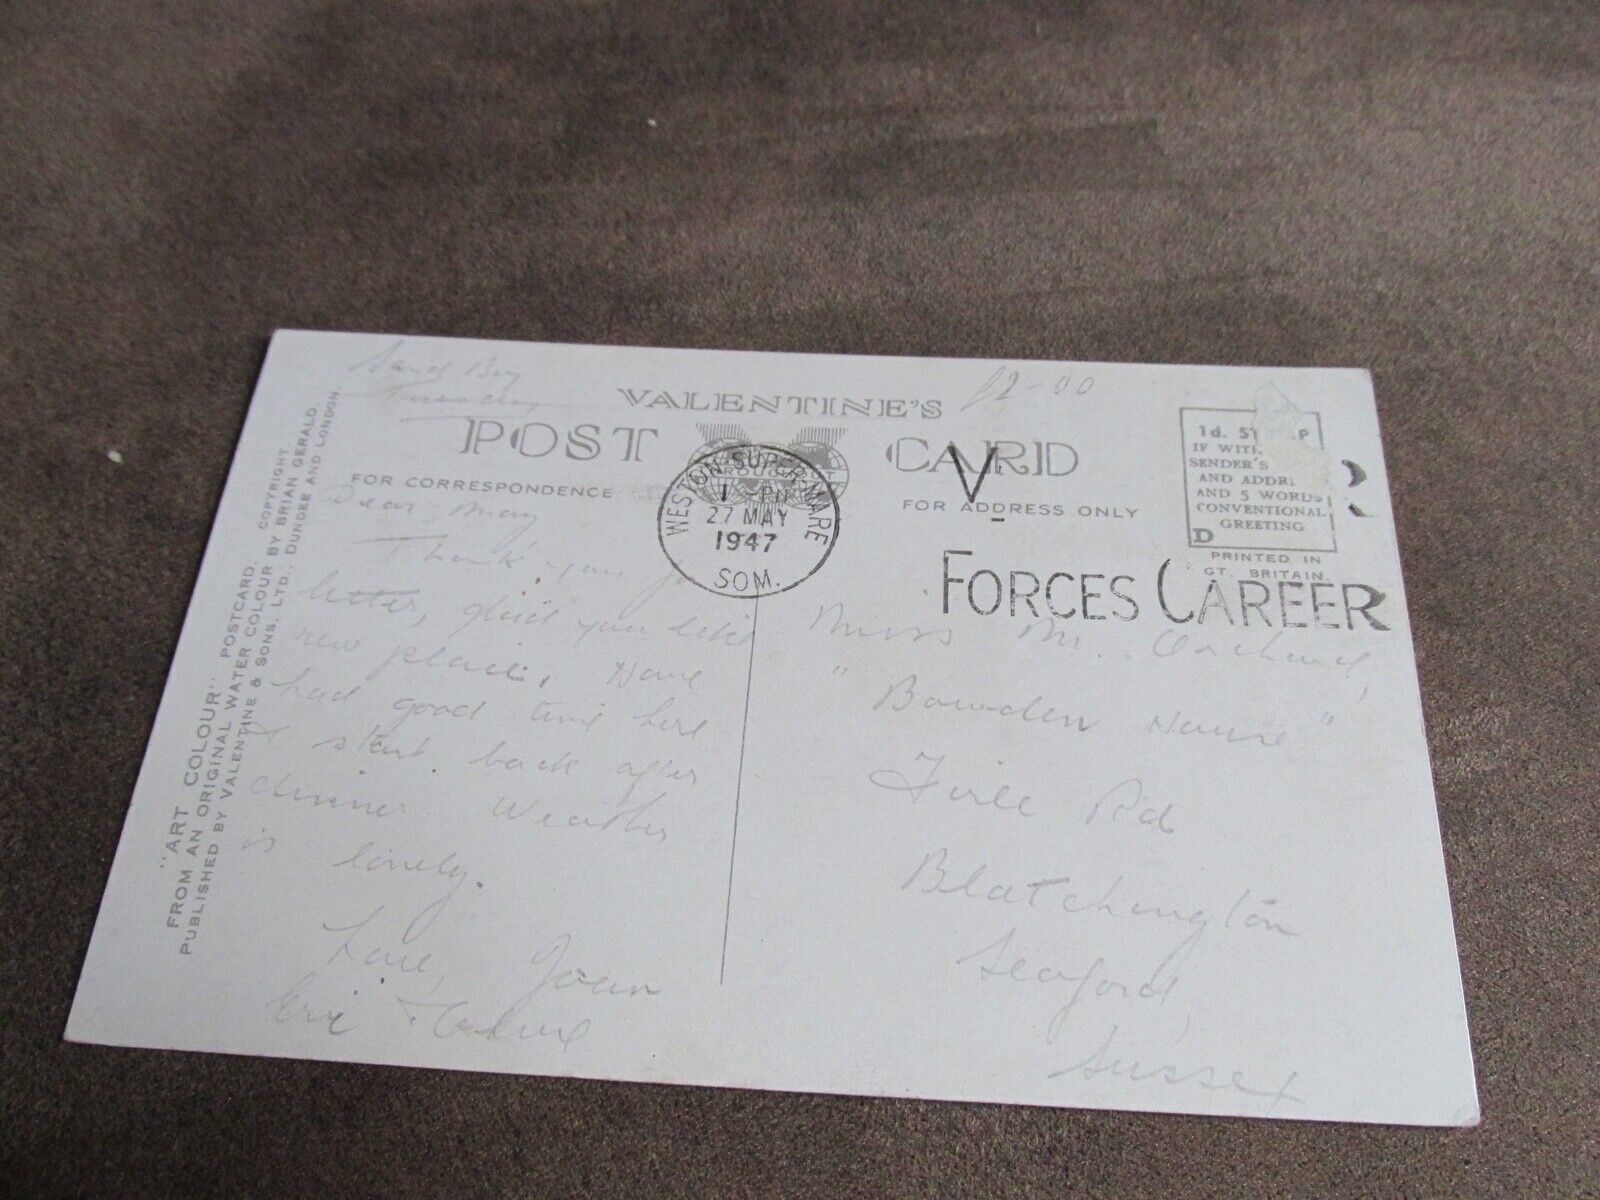 Sand Bay
VALENTINE'S
12-00
POST CARD
FOR CORRESPONDENCE
FOR ADDRESS ONLY
1d. ST
IF WITH
SENDER'S
AND ADDR
AND 5 WORDS
CONVENTIONAL
GREETING
D
PRINTED IN
GT. BRITAIN.
WESTON-SUPER-MARE
27 MAY
1947
SOM.
FORCES CAREER
Dear May
Thank you for
letter, glad you like
new place. Have
had good time here
start back after
dinner. Weather
is lovely.
Love, Joan
Eric +
Miss M.
"Bowden House"
Firle Rd
Blatchington
Seaford
Sussex
"ART COLOUR" POSTCARD.
FROM AN ORIGINAL WATER COLOUR BY BRIAN GERALD.
COPYRIGHT
PUBLISHED BY VALENTINE & SONS, LTD., DUNDEE AND LONDON